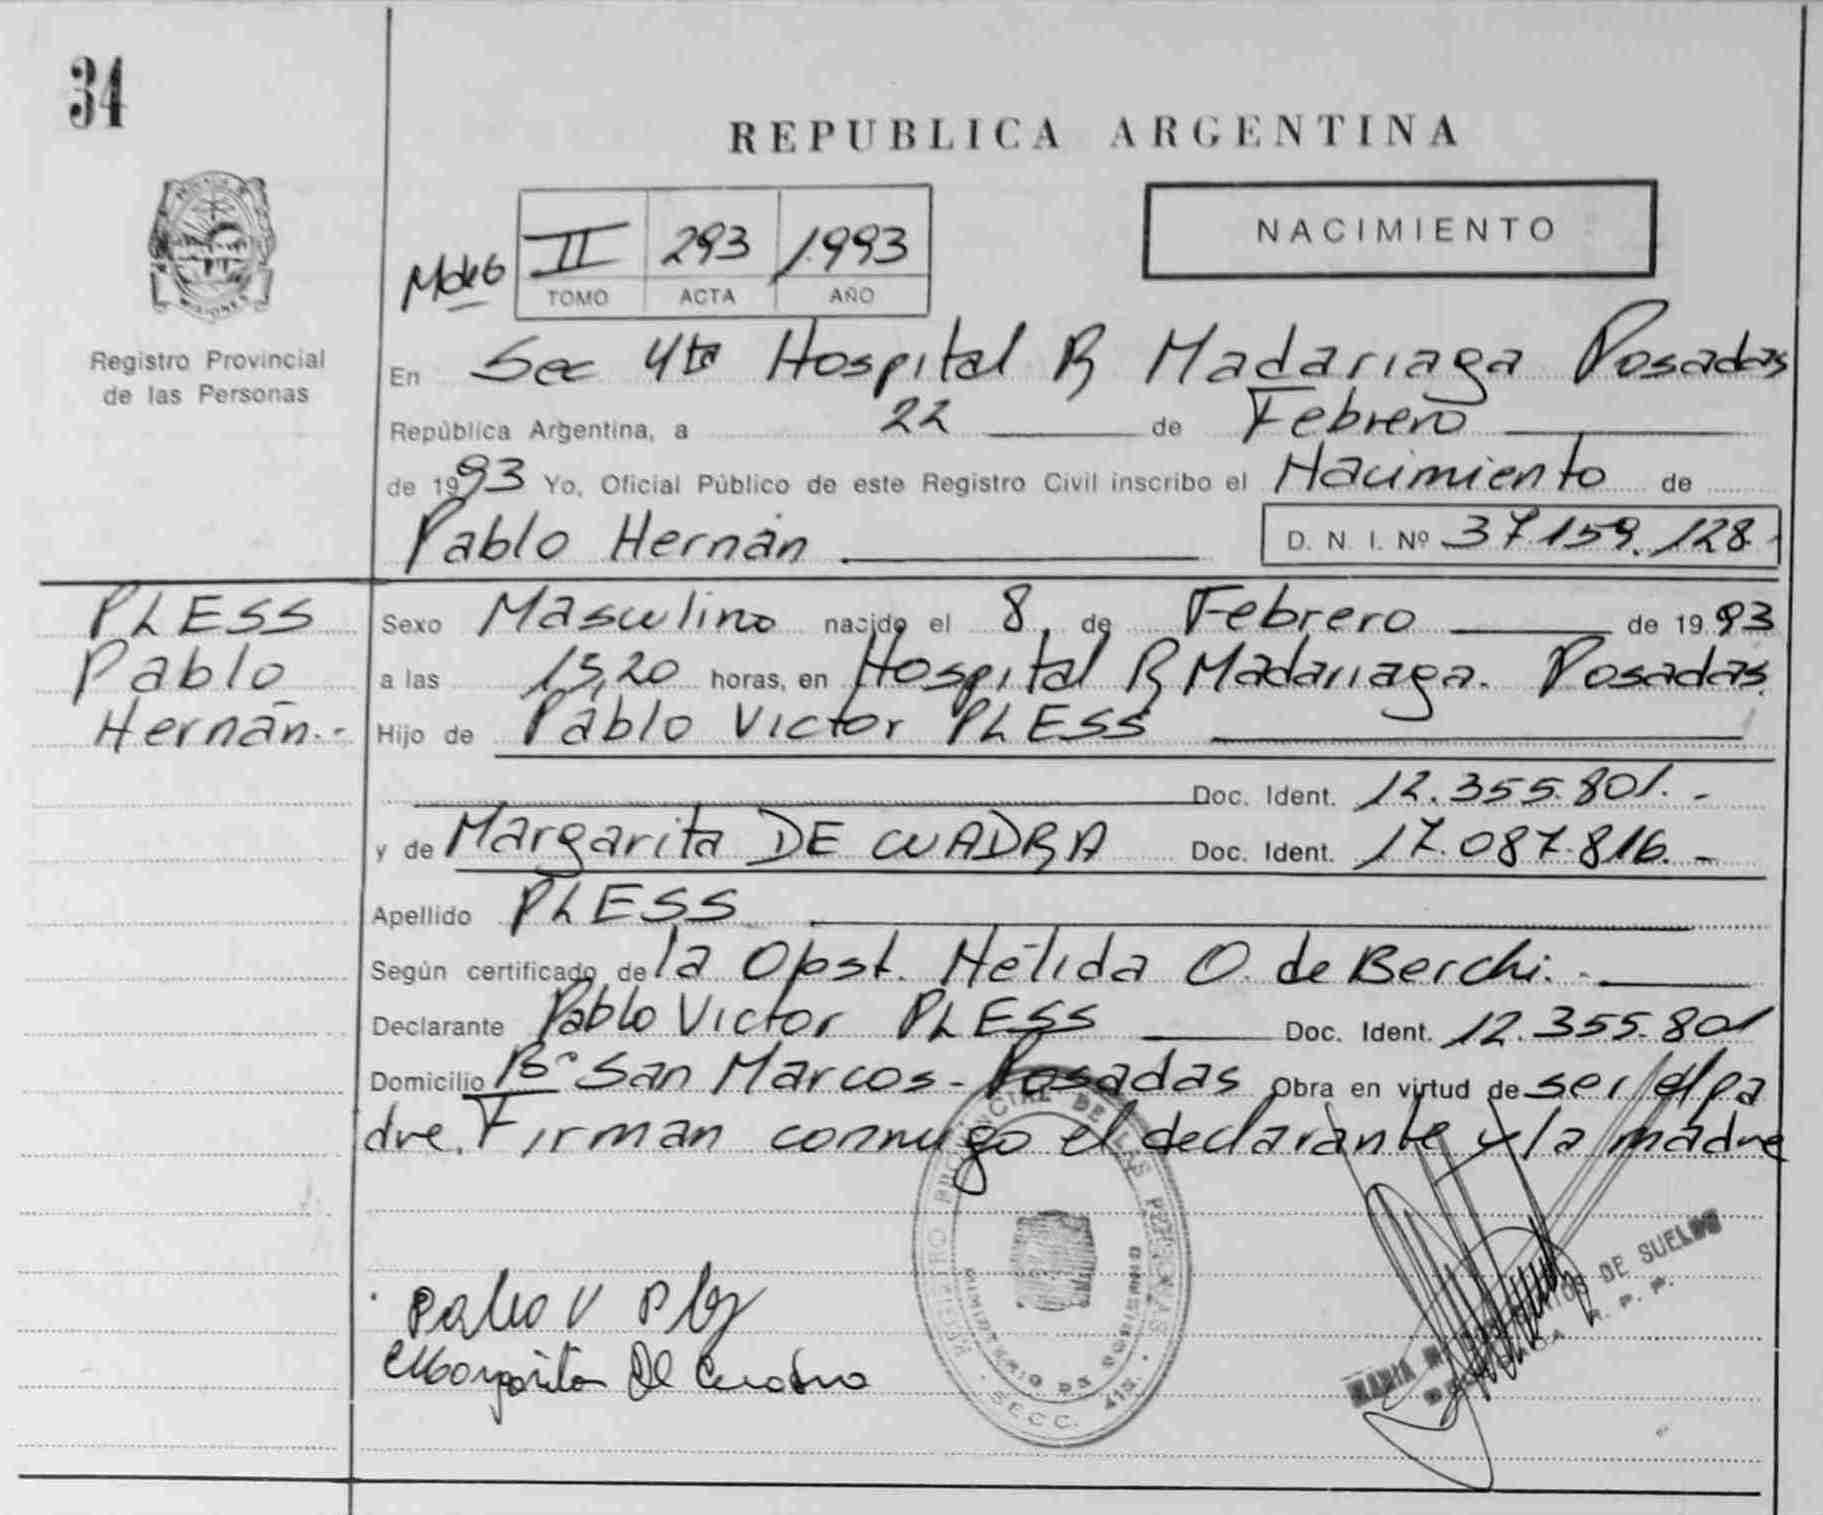 34
REPUBLICA ARGENTINA
NACIMIENTO
II 293 1993
TOMO ACTA AÑO
Registro Provincial
de las Personas
En Sec 4ta Hospital R Madariaga Posadas
República Argentina, a 22 de Febrero
de 1993 Yo, Oficial Público de este Registro Civil inscribo el Nacimiento de
Pablo Hernán D. N. I. Nº 37.159.128
PLESS
Pablo
Hernán.-
Sexo Masculino nacido el 8 de Febrero de 1993
a las 15,20 horas, en Hospital R Madariaga. Posadas
Hijo de Pablo Victor PLESS
Doc. Ident. 12.355.801.-
y de Margarita DE CUADRA Doc. Ident. 17.087.816.-
Apellido PLESS
Según certificado de la Obst. Nélida O. de Berchi.-
Declarante Pablo Victor PLESS Doc. Ident. 12.355.801
Domicilio Bº San Marcos - Posadas Obra en virtud de ser el pa
dre. Firman conmigo el declarante y la madre
REGISTRO PROVINCIAL DE LAS PERSONAS
MINISTERIO DE GOBIERNO
SECC. 4ta.
Pablo V Pless
Margarita De Cuadra
MARIA DE SUELDO
R. P. P.